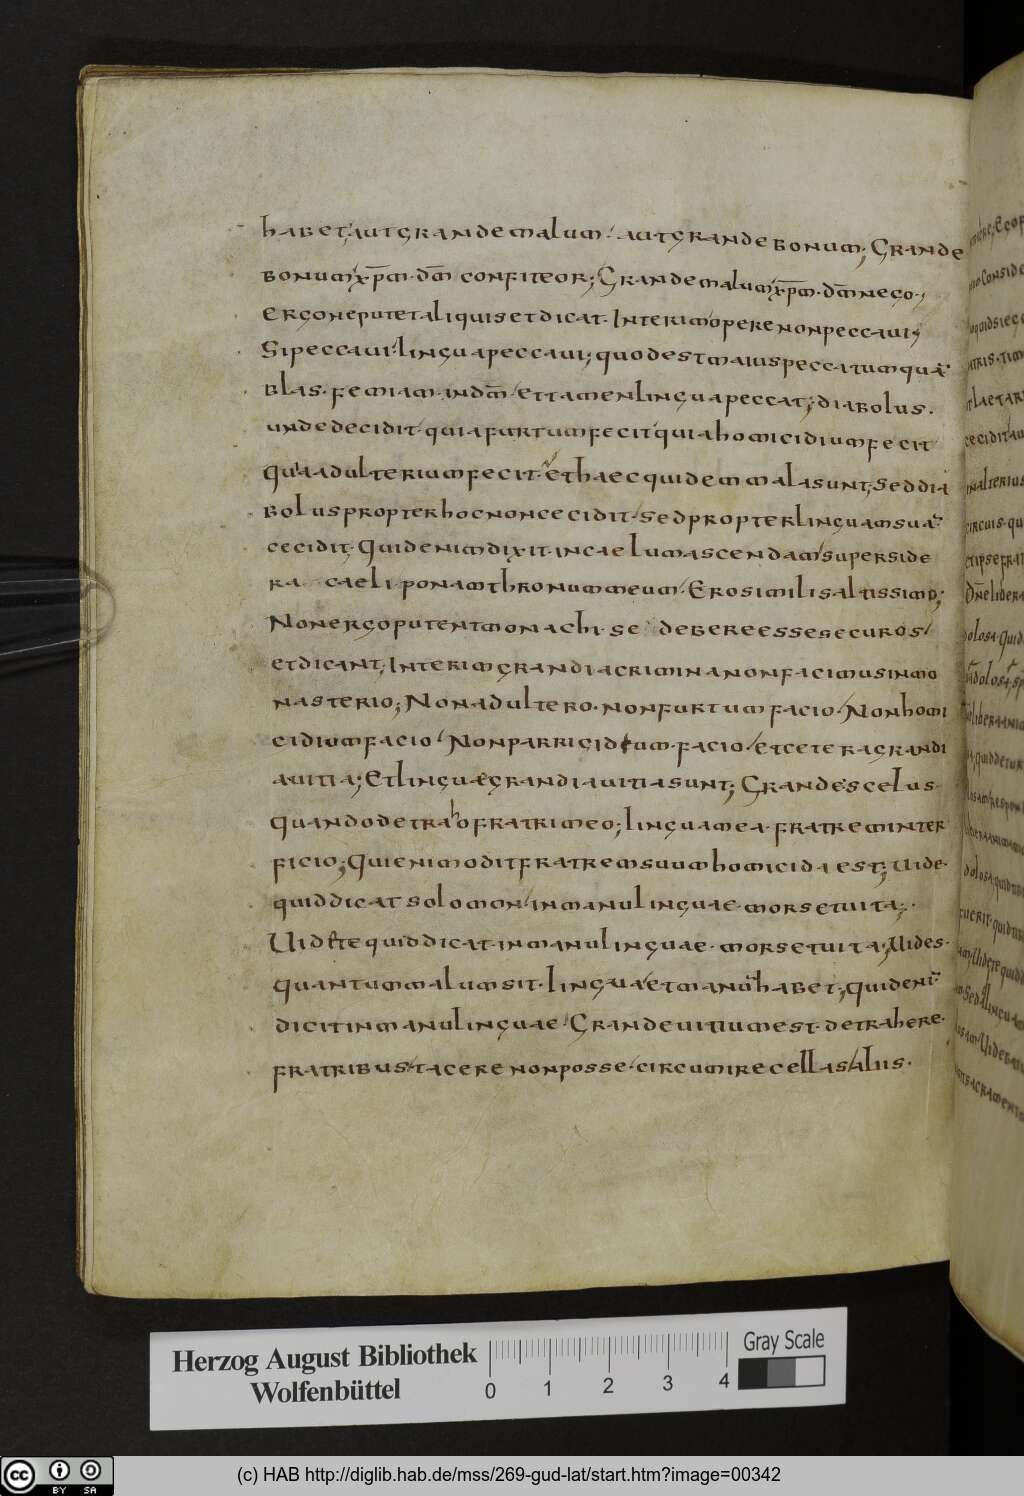 habet, aut grande malum. aut grande bonum; Grande
bonum xp̄m. dm̄ confiteor; Grande malum xp̄m. dm̄ nego.,
Ergo ne putet aliquis et dicat. Interim opere non peccavi,
Si peccavi lingua peccavi; quod est maius peccatum quā
blasfemiam in dm̄ et tamen lingua peccat; diabolus.
unde decidit. quia furtum fecit quia homicidium fecit
quia adulterium fecit. et haec quidem mala sunt, sed dia
bolus propter hoc non cecidit. sed propter linguam suā.
cecidit. Quid enim dixit. in caelum ascendam super side
ra caeli. ponam thronum meum. Ero similis altissimo;
Non ergo putent monachi. se debere esse securos
et dicant, Interim grandia crimina non facimus in mo
nasterio; Non adultero. non furtum facio. Non homi
cidium facio. Non parricidium. facio. et cetera grandi
a vitia; Et linguae grandia vitia sunt; Grande scelus
quando detraho fratri meo; lingua mea. fratrem inter
ficio; Qui enim odit fratrem suum homicida est; Vide
quid dicat solomon in manu linguae. mors et vita;.
Videte quid dicat. in manu linguae. mors et vita; Vides.
quantum malum sit. lingua et manū habet, quid enī
dicit in manu linguae Grande vitium est. detrahere.
fratribus. tacere non posse. circumire cellas aliis.
Herzog August Bibliothek
Wolfenbüttel
0 1 2 3 4
Gray Scale
cc BY SA
(c) HAB http://diglib.hab.de/mss/269-gud-lat/start.htm?image=00342